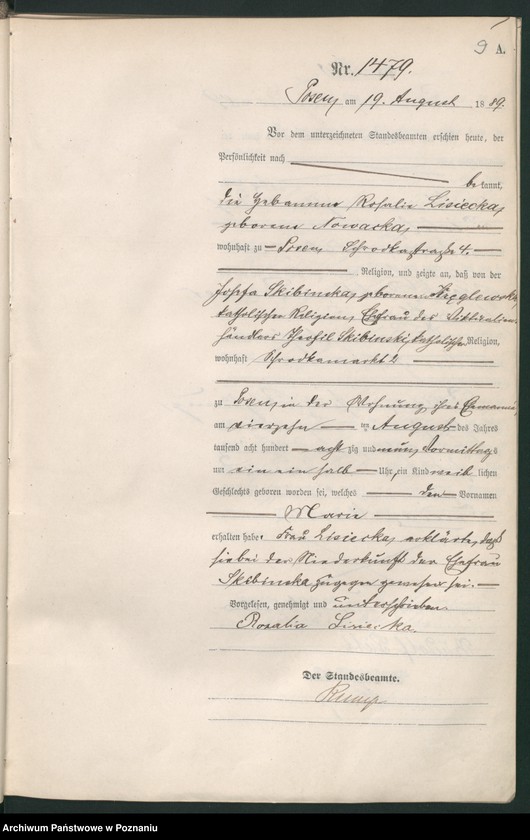 9 A.
Nr. 1479.
Posen am 19. August 1889.
Vor dem unterzeichneten Standesbeamten erschien heute, der
Persönlichkeit nach
bekannt,
die Hebamme Rosalie Lisiecka,
geborene Nowacka,
wohnhaft zu Posen Schrodkastraße 4.
Religion, und zeigte an, daß von der
Josefa Skibinska, geborenen
katholischer Religion, Ehefrau des Viktualien-
händlers Theofil Skibinski, katholischer Religion,
wohnhaft Schrodkamarkt 2
zu Posen, in der Wohnung ihres Ehemannes
am vierzehn ten August des Jahres
tausend acht hundert achtzig und neun, Vormittags
um ein ein halb Uhr, ein Kind weiblichen
Geschlechts geboren worden sei, welches den Vornamen
Marie
erhalten habe. Frau Lisiecka, erklärte, daß
sie bei der Niederkunft der Ehefrau
Skibinska zugegen gewesen sei.
Vorgelesen, genehmigt und unterschrieben
Rosalia Lisiecka.
Der Standesbeamte.
Archiwum Państwowe w Poznaniu